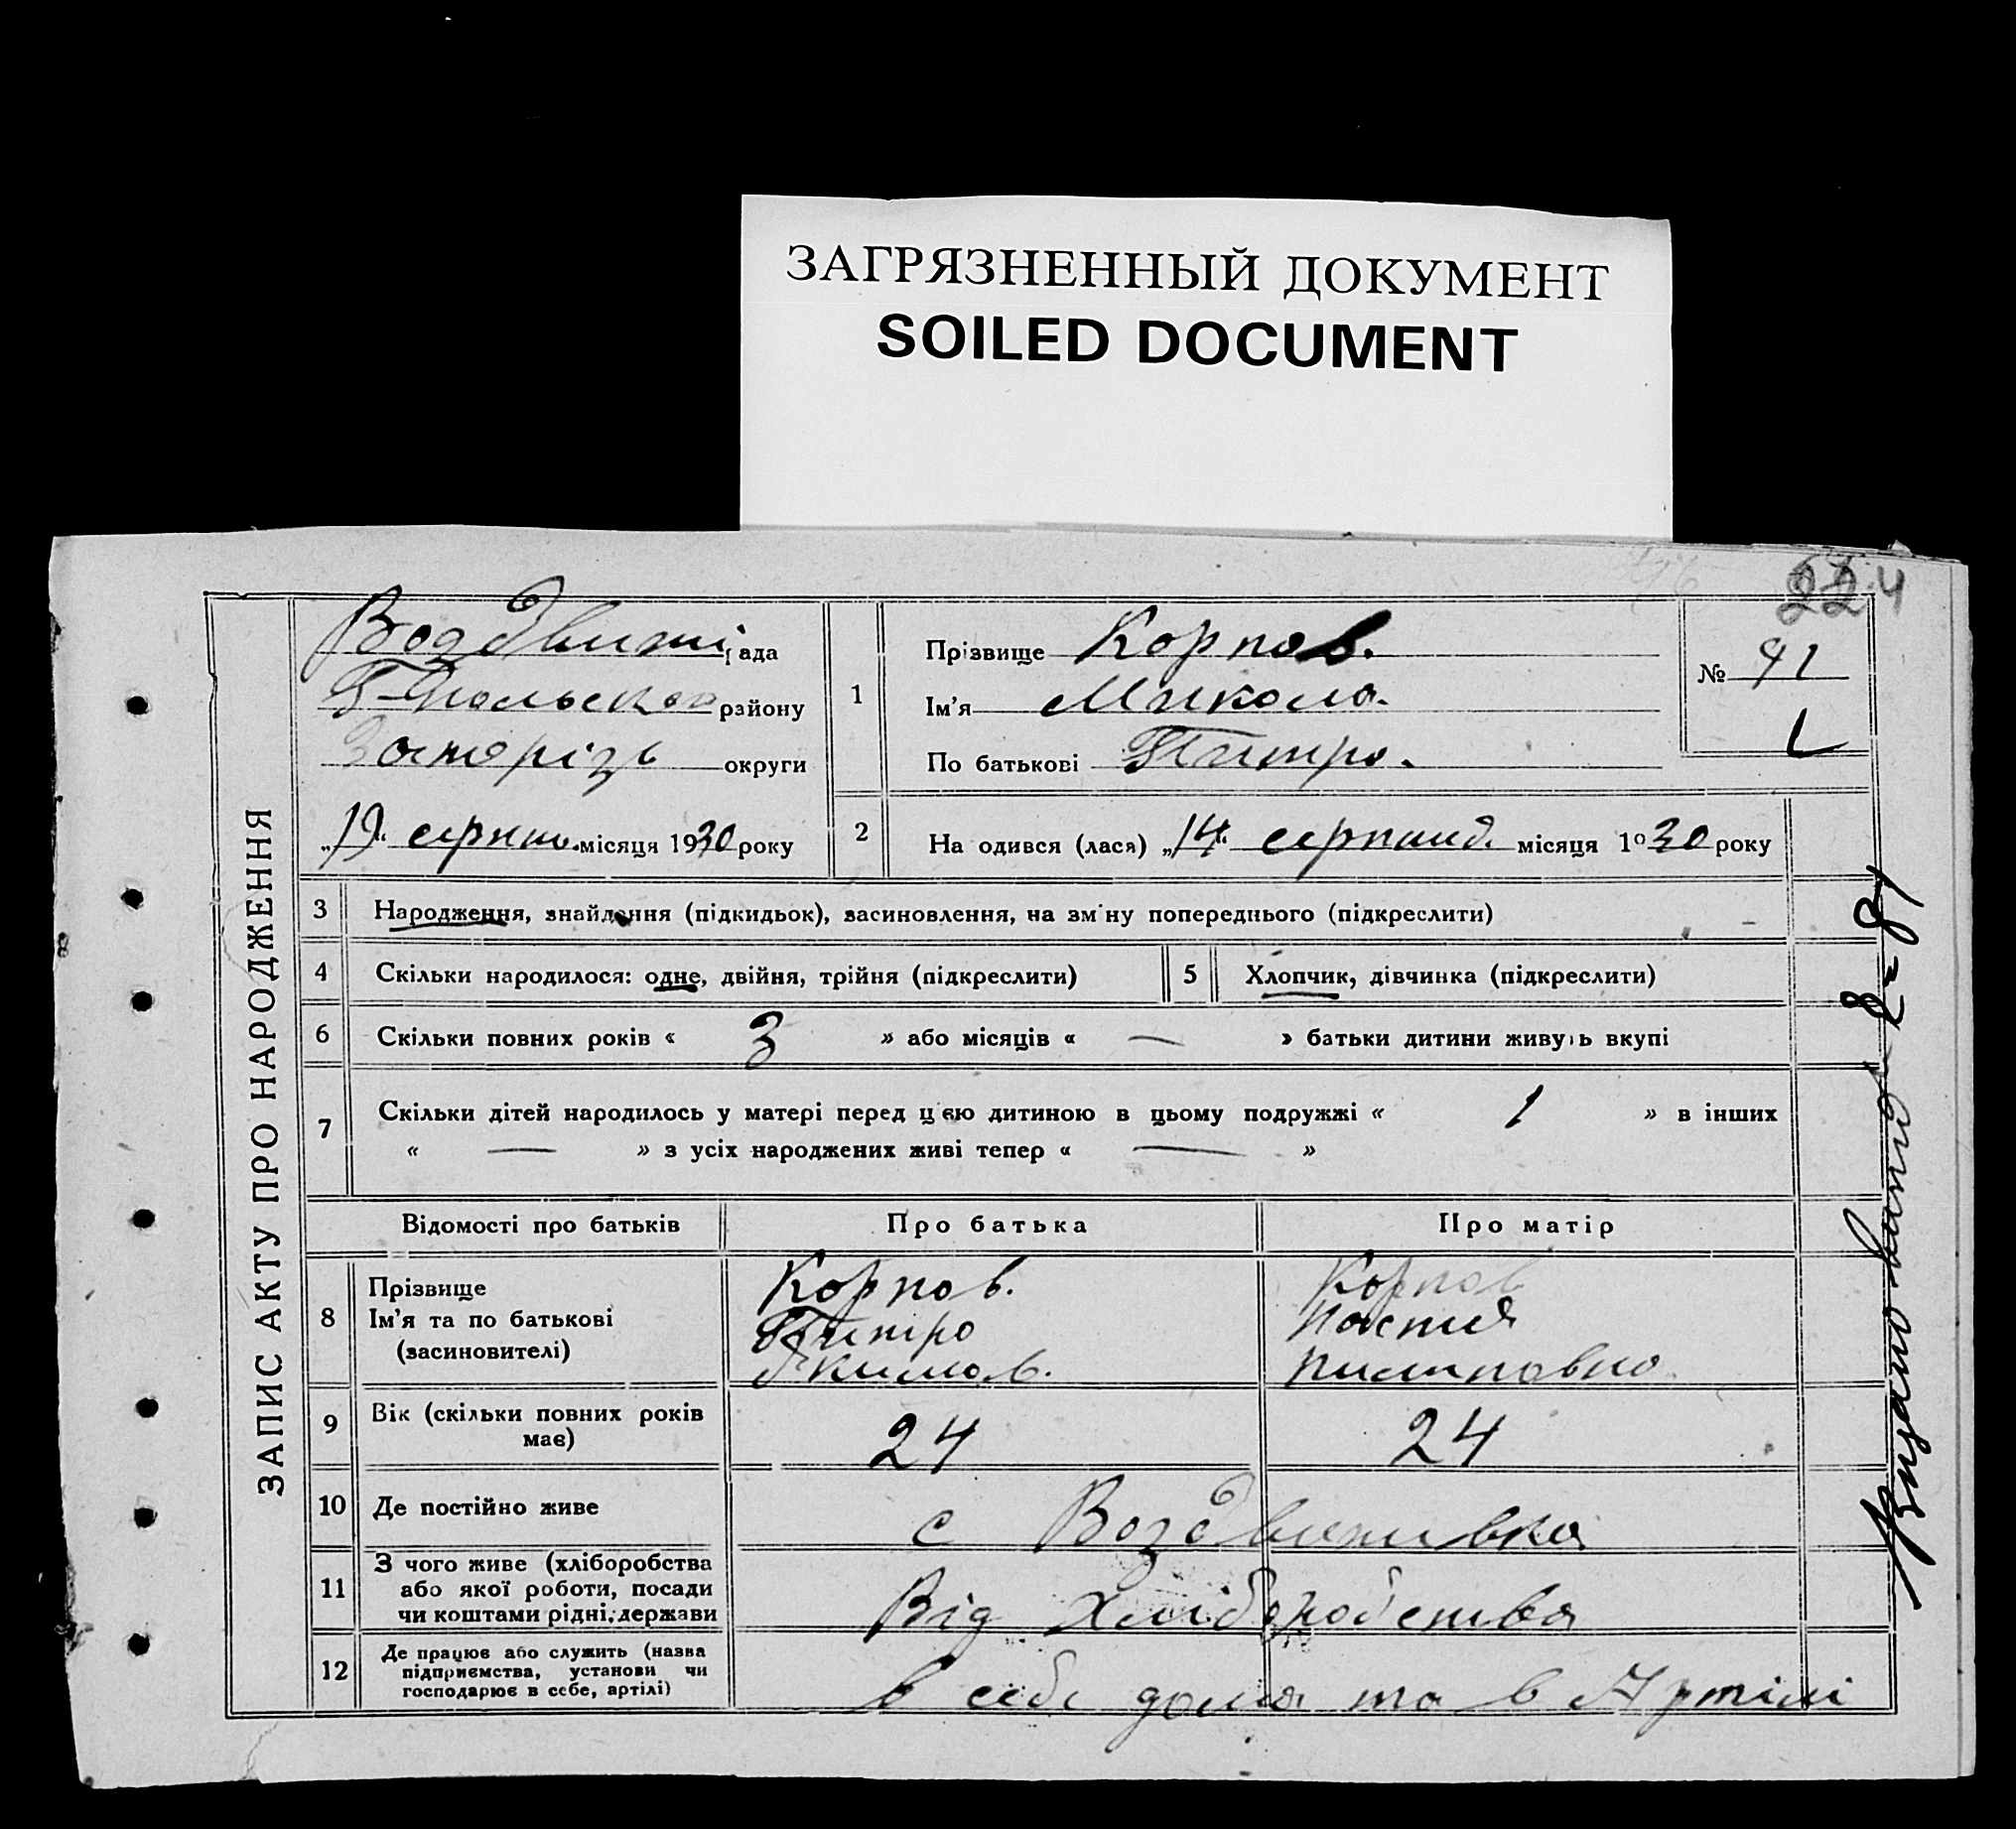 ЗАГРЯЗНЕННЫЙ ДОКУМЕНТ
SOILED DOCUMENT
224
ЗАПИС АКТУ ПРО НАРОДЖЕННЯ
Воздвижі рада
району
Запоріз округи
„19“ серпня місяця 1930 року
1
Прізвище Корпов.
Ім’я Микола.
По батькові Питро.
№ 91
2
На одився (лася) „14“ серпня місяця 1930 року
3 Народження, знайдення (підкидьок), засиновлення, на зміну попереднього (підкреслити)
4 Скільки народилося: одне, двійня, трійня (підкреслити)
5 Хлопчик, дівчинка (підкреслити)
6 Скільки повних років « 3 » або місяців « — » батьки дитини живуть вкупі
7 Скільки дітей народилось у матері перед цією дитиною в цьому подружжі « 1 » в інших
« — » з усіх народжених живі тепер « — »
Відомості про батьків Про батька Про матір
8 Прізвище
Ім’я та по батькові
(засиновителі)
Корпов.
Питро
Якимов.
Корпов
Настя
Пилиповна
9 Вік (скільки повних років
має)
24 24
10 Де постійно живе с Воздвиживка
11 З чого живе (хліборобства
або якої роботи, посади
чи коштами рідні, держави
Від хліборобства
12 Де працює або служить (назва
підприємства, установи чи
господарює в себе, артілі)
в себе дома та в Артілі